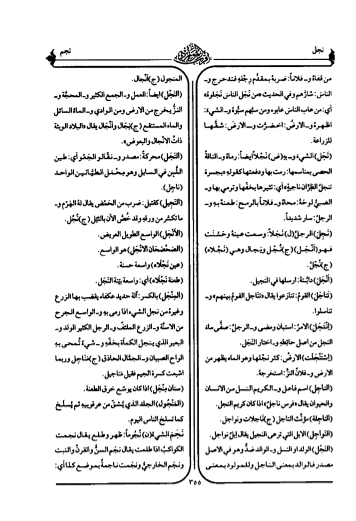 نجل
نجم
من قفاهُ وـ فلاناً: ضربهُ بمقدَّم رِجلهِ فتدحرج وـ
الناسَ: شارَّهم وفي الحديث «من نَجَلَ الناسَ نَجَلوهُ»
أي: من عاب الناسَ عابوه ومن سبَّهم سبُّوهُ وـ الشيءَ:
اظهرهُ وـ الارضُ: اخضرَّت وـ الارضَ: شقَّها
للزراعة.
(نَجَلَ) الشيءَ وـ بهِ(ض) نَجْلاً أيضاً: رماهُ وـ الناقةُ
الحصى بمناسمها: رمت بها ودفعتها كقولهِ
أي: تثيرها بخفّها وترمي بها وـ
الصبيُّ لوحَهُ: محاهُ وـ فلاناً بالرمح: طعنهُ بهِ وـ
الرجلُ: سار شديداً.
(نَجِلَ) الرجلُ(ل) نَجَلاً: وسعت عينهُ وحسُنت
فهو (أنجَل) (ج)نُجْل ونِجال وهي (نَجْلاء)
(ج)نُجْل.
(أنْجَلَ) دابّتهُ: ارسلها في النجيل.
(تناجَلَ) القومُ: تنازعوا يقال «تناجل القومُ بينهم» وـ
تناسلوا.
(إنْتَجَلَ) الامرُ: استبان ومضى وـ الرجلُ: صفَّى ماءَ
النجل من اصل حائطهِ وـ اختار النَّجل.
(إسْتَنْجَلَت) الارضُ: كثر نجلها وهو الماء يظهر من
الارض وـ فلانٌ النزَّ: استخرجهُ.
(الناجِل) اسم فاعل وـ الكريم النسل من الانسان
والحيوان يقال «فرس ناجلٌ» اذا كان كريم النجل.
(الناجِلة) مؤنَّث الناجل (ج)ناجلات ونواجل.
(النَواجِل) الابل التي ترعى النجيل يقال إبلٌ نواجل.
(النَجْل) الولد او النسل وـ الوالد ضدٌّ وهو في الاصل
مصدر فالوالد بمعنى الناجل وللمولود بمعنى
المنجول (ج)أنْجال.
(النَجْل) ايضاً: العمل وـ الجمع الكثير وـ المحجَّة وـ
النزّ يخرج من الارض ومن الوادي وـ الماءُ السائل
والماء المستنقع (ج)نِجال وأنْجال يقال «البلاد الوبئة
ذاتُ الأنجال والبعوض».
(النَجَل) محركةً: مصدر وـ نقّالو الجَعْو أي: طين
اللَّبِن في السابل وهو محمل الطيّانين الواحد
(ناجِل).
(النَجيل) كقتيل: ضرب من الحَمْض يقال لهُ الهَرْم وـ
ما تكسَّر من ورقهِ وقد خُصَّ الآن بالثيّل (ج)نُجُل.
(الأنْجَل) الواسع الطويل العريض.
(الصَّحْصَحان الأنْجَل) هو الواسع.
(عين نَجْلاء) واسعة حسنة.
(طعنة نَجْلاء) أي: واسعة بيّنة النَّجَل.
(المِنْجَل) بالكسر: آلة حديد عكفاء يقضب بها الزرع
وغيرهُ من نجل الشيءَ اذا رمى بهِ وـ الواسع الجرح
من الاسنّة وـ الزرع الملتفّ وـ الرجل الكثير الولد وـ
البعير الذي ينجل الكمأة بخفّهِ وـ شيءٌ تُمحى بهِ
ألواح الصبيان وـ الجمّال الحاذق (ج)مَناجِل وربما
اشبعت كسرة الجيم فقيل مَناجيل.
(سنان مِنْجَل) اذا كان يوسّع خرق الطعنة.
(المَنْجول) الجلد الذي يُشقّ من عرقوبيهِ ثم يُسلَخ
كما تسلخ الناس اليوم.
نَجَمَ الشيءُ(ن) نُجوماً: ظهر وطلع يقال نجمت
الكواكبُ اذا طلعت يقال نجم السنُّ والقرنُ والنبت
ونجم الخارجيُّ ونجمت ناجمةٌ بموضع كذا أي:
٣٥٥